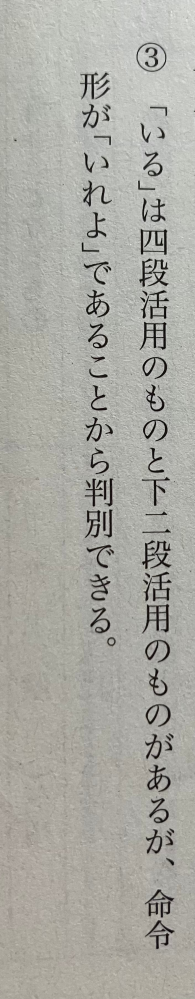 ③ 「いる」は四段活用のものと下二段活用のものがあるが、命令
形が「いれよ」であることから判別できる。